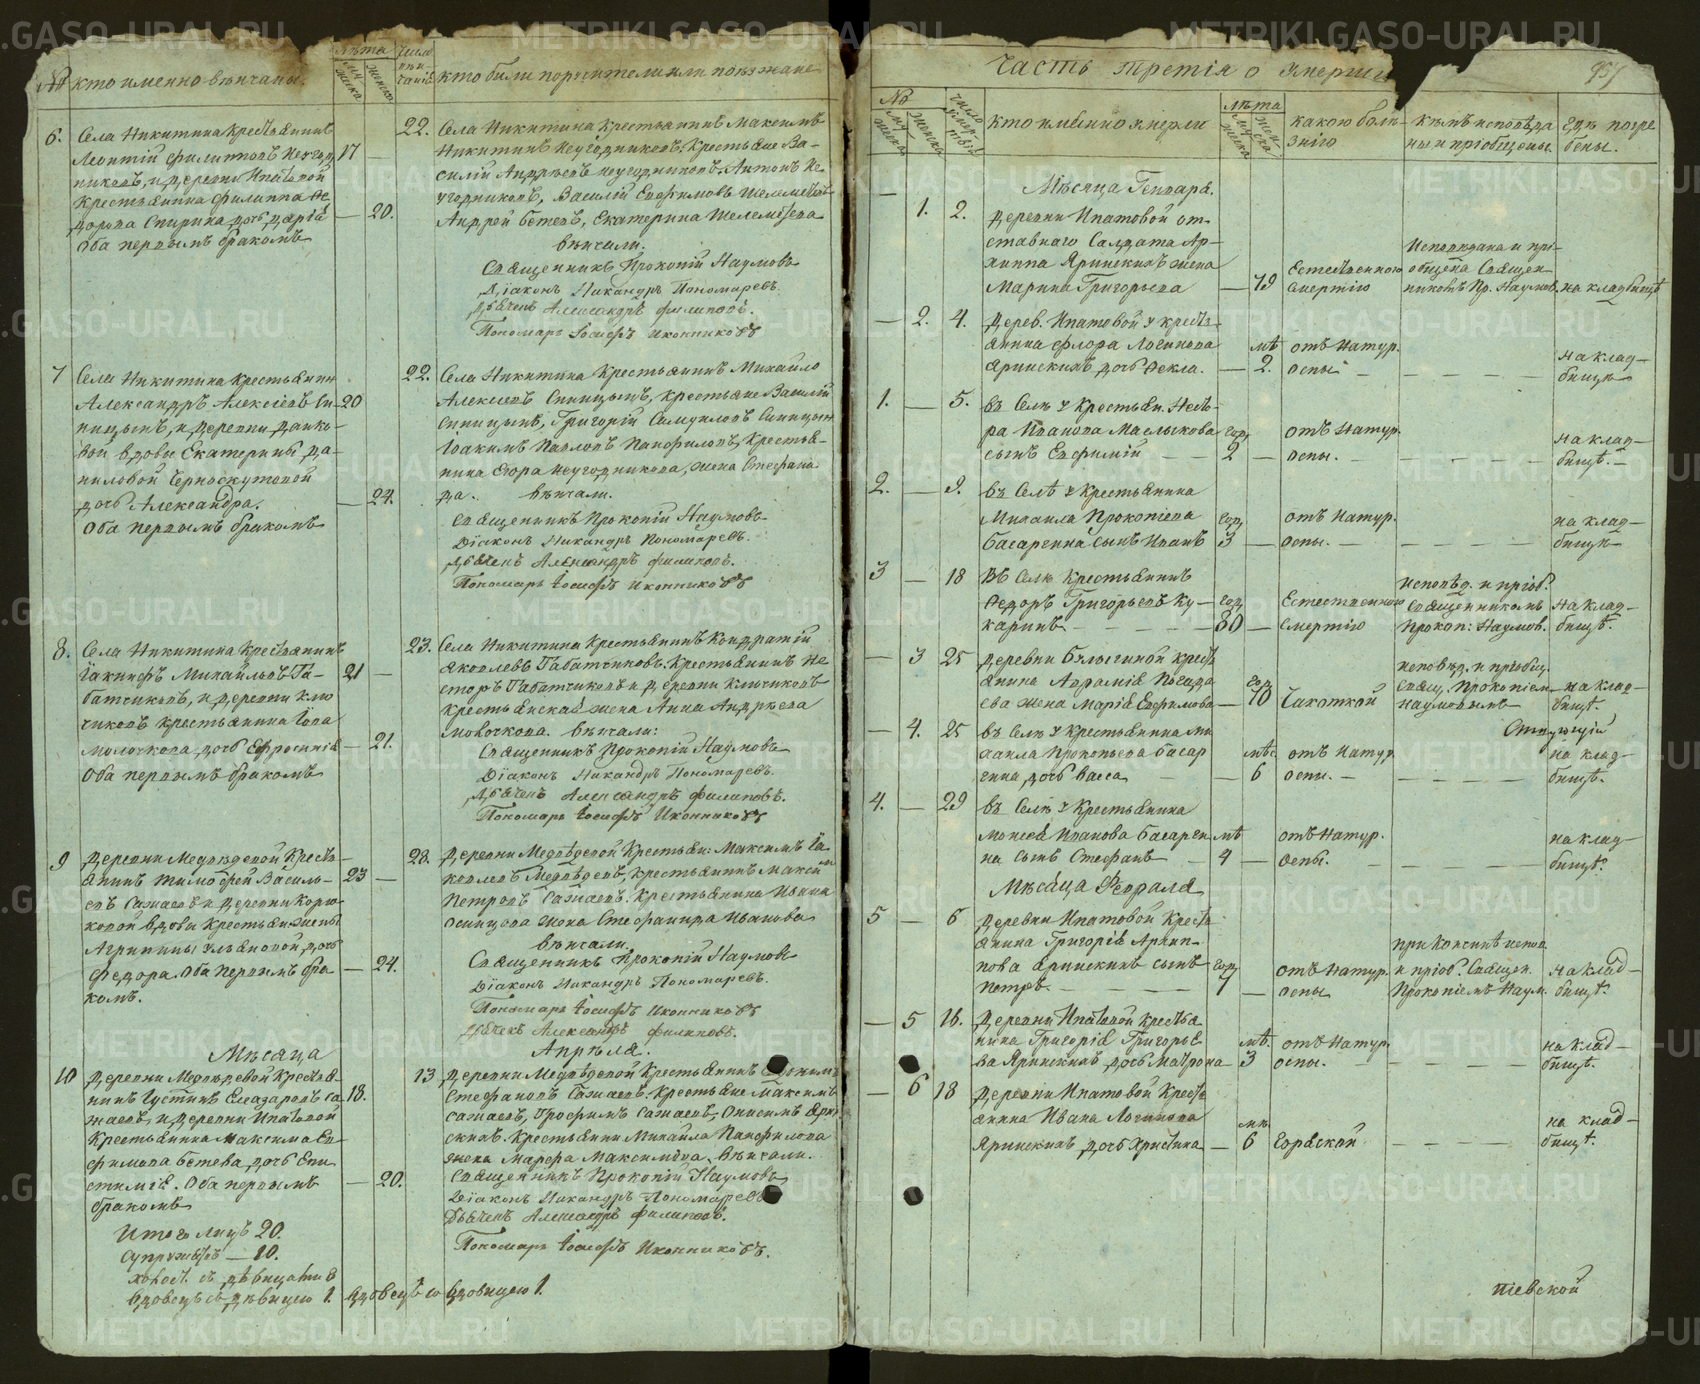 № кто именно вѣнчаны.
лѣта
мужеска
женска
кто были поручители или поѣзжане
6.
Села Никитина Крестьянинъ
Леонтій Филипповъ Неугод
никовъ, и деревни Ипатовой
Крестьянина Филиппа Ѳе
дорова Спирина дочь Дарія
Оба первымъ бракомъ
17 —
— 20.
22.
Села Никитина Крестьянинъ Максимъ
Никитинъ Неугодниковъ. Крестьяне Ва-
силій Андреевъ Неугодниковъ. Антонъ Не
угодниковъ, Василій Евфимовъ Шелеметевъ
Андрей Бетевъ, Екатерина Шелеметева
вѣнчали.
Священникъ Прокопій Наумовъ
Діаконъ Никандръ Пономаревъ.
Дьячекъ Александръ Филиповъ.
Пономарь Іосифъ Иконниковъ
7
Села Никитина Крестьянинъ
Александръ Алексіевъ Си
ницынъ, и деревни Данко-
вой вдовы Екатерины Да-
ниловой Черноскутовой
дочь Александра.
Оба первымъ бракомъ
20
— 24.
22.
Села Никитина Крестьянинъ Михайло
Алексіевъ Синицынъ, крестьяне Василій
Синицынъ, Григорій Самуиловъ Синицын
Іоакимъ Павловъ Панфиловъ, Крестья-
нина Егора Неугодникова, жена Стефани
да. вѣнчали.
Священникъ Прокопій Наумовъ
Діаконъ Никандръ Пономаревъ.
Дьячекъ Александръ Филиповъ.
Пономарь Іосифъ Иконниковъ
8.
Села Никитина Крестьянинъ
Іакинфъ Михайловъ Га-
батчиковъ, и деревни Клю
чиковъ крестьянина Іова
Молочкова, дочь Ефросинія
Оба первымъ бракомъ
21 —
— 21.
23.
Села Никитина Крестьянинъ Кондратій
Яковлевъ Габатчиковъ. Крестьянинъ Не
сторъ Габатчиковъ и деревни Ключиковъ
крестьянская жена Анна Андреева
Молочкова. вѣнчали:
Священникъ Прокопій Наумовъ
Діаконъ Никандръ Пономаревъ.
Дьячекъ Александръ Филиповъ.
Пономарь Іосифъ Иконниковъ
9
Деревни Медвѣдевой Крестья-
янинъ Тимофей Василь-
евъ Сажаевъ и деревни Корю-
ковой вдовы Крестьян. жены
Агрипины Ульяновой, дочь
Федора. Оба первымъ бра
комъ.
23 —
— 24.
Деревни Медвѣдевой Крестьян: Максимъ Іа
ковлевъ Медвѣдевъ, крестьянинъ Максим
Петровъ Сажаевъ. Крестьянина Ивана
Осинцова жена Стефанида Иванова
вѣнчали.
Священникъ Прокопій Наумовъ
Діаконъ Никандръ Пономаревъ.
Пономарь Іосифъ Иконниковъ
Дьячекъ Александръ Филиповъ.
Мѣсяца
Апрѣля.
10
Деревни Медвѣдевой Крестья-
нинъ Іустинъ Елеазаровъ Са
жаевъ, и деревни Ипатовой
Крестьянина Максима Ев
фимова Бетева, дочь Епи
стимія. Оба первымъ
бракомъ
18.
— 20.
13
Деревни Медвѣдевой Крестьянинъ
Стефановъ Сажаевъ. Крестьяне Максимъ
Сажаевъ, Трофимъ Сажаевъ, Онисимъ Ярин
скихъ. Крестьянина Михайла Панфилова
жена Марфа Максимова. вѣнчали.
Священникъ Прокопій Наумовъ
Діаконъ Никандръ Пономаревъ
Дьячекъ Александръ Филиповъ.
Пономарь Іосифъ Иконниковъ.
Итого лицъ 20.
Супружествъ — 10.
холост. съ дѣвицами 8
Вдовецъ съ дѣвицею 1. Вдовецъ со вдовицею 1.
Часть третія о умерши
№
мужеска
женска
кто именно умерли
лѣта
какою болѣ
знію
кѣмъ исповѣда
ны и пріобщены.
Гдѣ погре
бены.
Мѣсяца Генваря.
— 1. 2.
деревни Ипатовой от-
ставнаго Салдата Ар-
хиппа Яринскихъ жена
Марина Григорьева
— 79
Естественною
смертію
Исповѣдана и прі-
общена Священ-
никомъ Пр. Наумов.
на кладбищѣ
— 2. 4.
дерев. Ипатовой у кресть-
янина Флора Логинова
Яринскихъ дочь Ѳекла. —
лѣ
2.
отъ натур.
оспы
на клад-
бищѣ
1. — 5.
въ Селѣ у Крестьян. Несто-
ра Иванова Маслыкова
сынъ Евфимій
год
2 —
отъ Натур.
оспы.
на клад-
бищѣ.
2. — 9.
въ Селѣ у Крестьянина
Михаила Прокопіева
Басаргина сынъ Иванъ
год
3 —
отъ Натур.
оспы.
на клад-
бищѣ
3 — 18
Въ Селѣ Крестьянинъ
Ѳедоръ Григорьевъ Ку-
каринъ
год
80 —
Естественною
смертію
исповѣд. и пріоб.
Священникомъ
Прокоп: Наумов.
на клад-
бищѣ.
— 3 25
деревни Булыгиной крест
янина Аврамія Посяда
ева жена Марія Евфимова
год
— 70
Чахоткой
исповѣд. и пріобщ.
Свящ. Прокопіем
Наумовымъ
на клад-
бищѣ.
— 4. 25
въ Селѣ у Крестьянина Ми
хаила Прокопьева Басар
гина дочь Васса
мѣс.
— 6
отъ Натур
оспы.
на клад-
бищѣ.
4. — 29
въ Селѣ у Крестьянина
Моисея Иванова Басарги
на сынъ Стефанъ
лѣ
4 —
отъ Натур.
оспы.
на клад-
бищѣ.
Мѣсяца Февраля
5 — 6
деревни Ипатовой Крестья
янина Григорія Архип-
пова Яринскихъ сынъ
Петръ.
год
7 —
отъ Натур.
оспы
при кончинѣ испов
и пріоб. Священ.
Прокопіемъ Наум.
на клад-
бищѣ.
— 5 16.
Деревни Ипатовой крестья
нина Григорія Григорье
ва Яринскихъ дочь Матрона
лѣ.
— 3
отъ Натур.
оспы.
на клад-
бищѣ.
— 6 18
Деревни Ипатовой Крест
янина Ивана Логинова
Яринскихъ дочь Христина
— 6
Горячкой
на клад-
бищѣ.